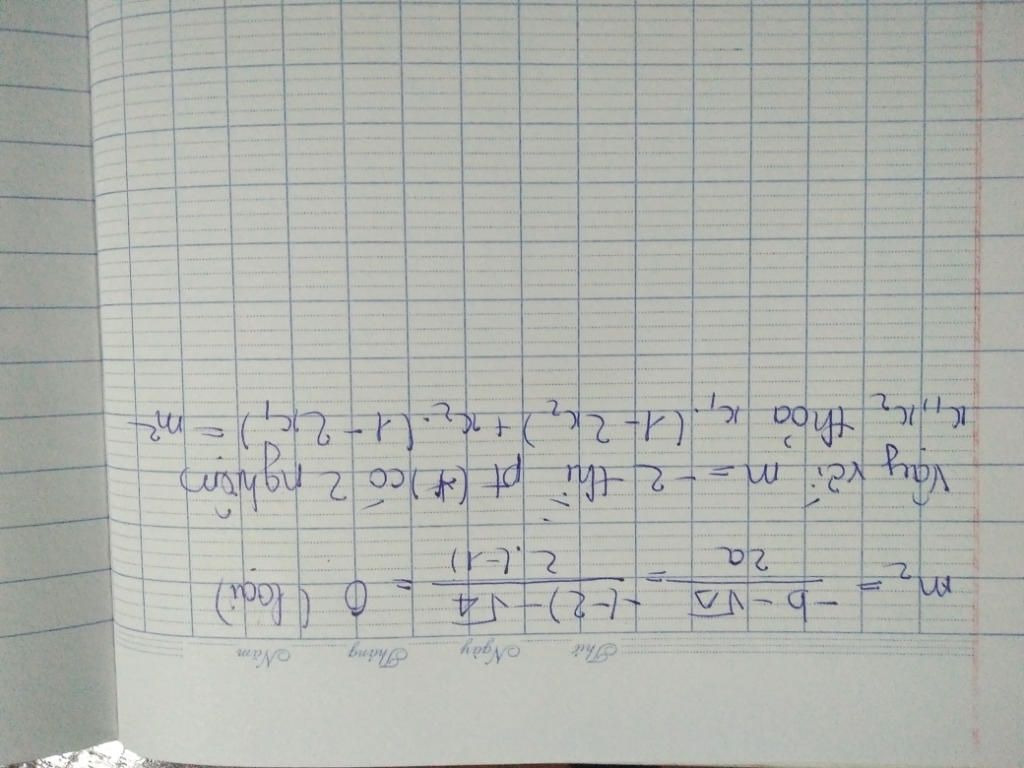 Thứ Ngày Tháng Năm
m₂ = (-b - √Δ)/2a = (-(-2) - √4)/(2.(-1)) = 0 (loại)
Vậy với m = -2 thì pt (*) có 2 nghiệm
x₁, x₂ thỏa x₁.(1 - 2x₂) + x₂.(1 - 2x₁) = m²